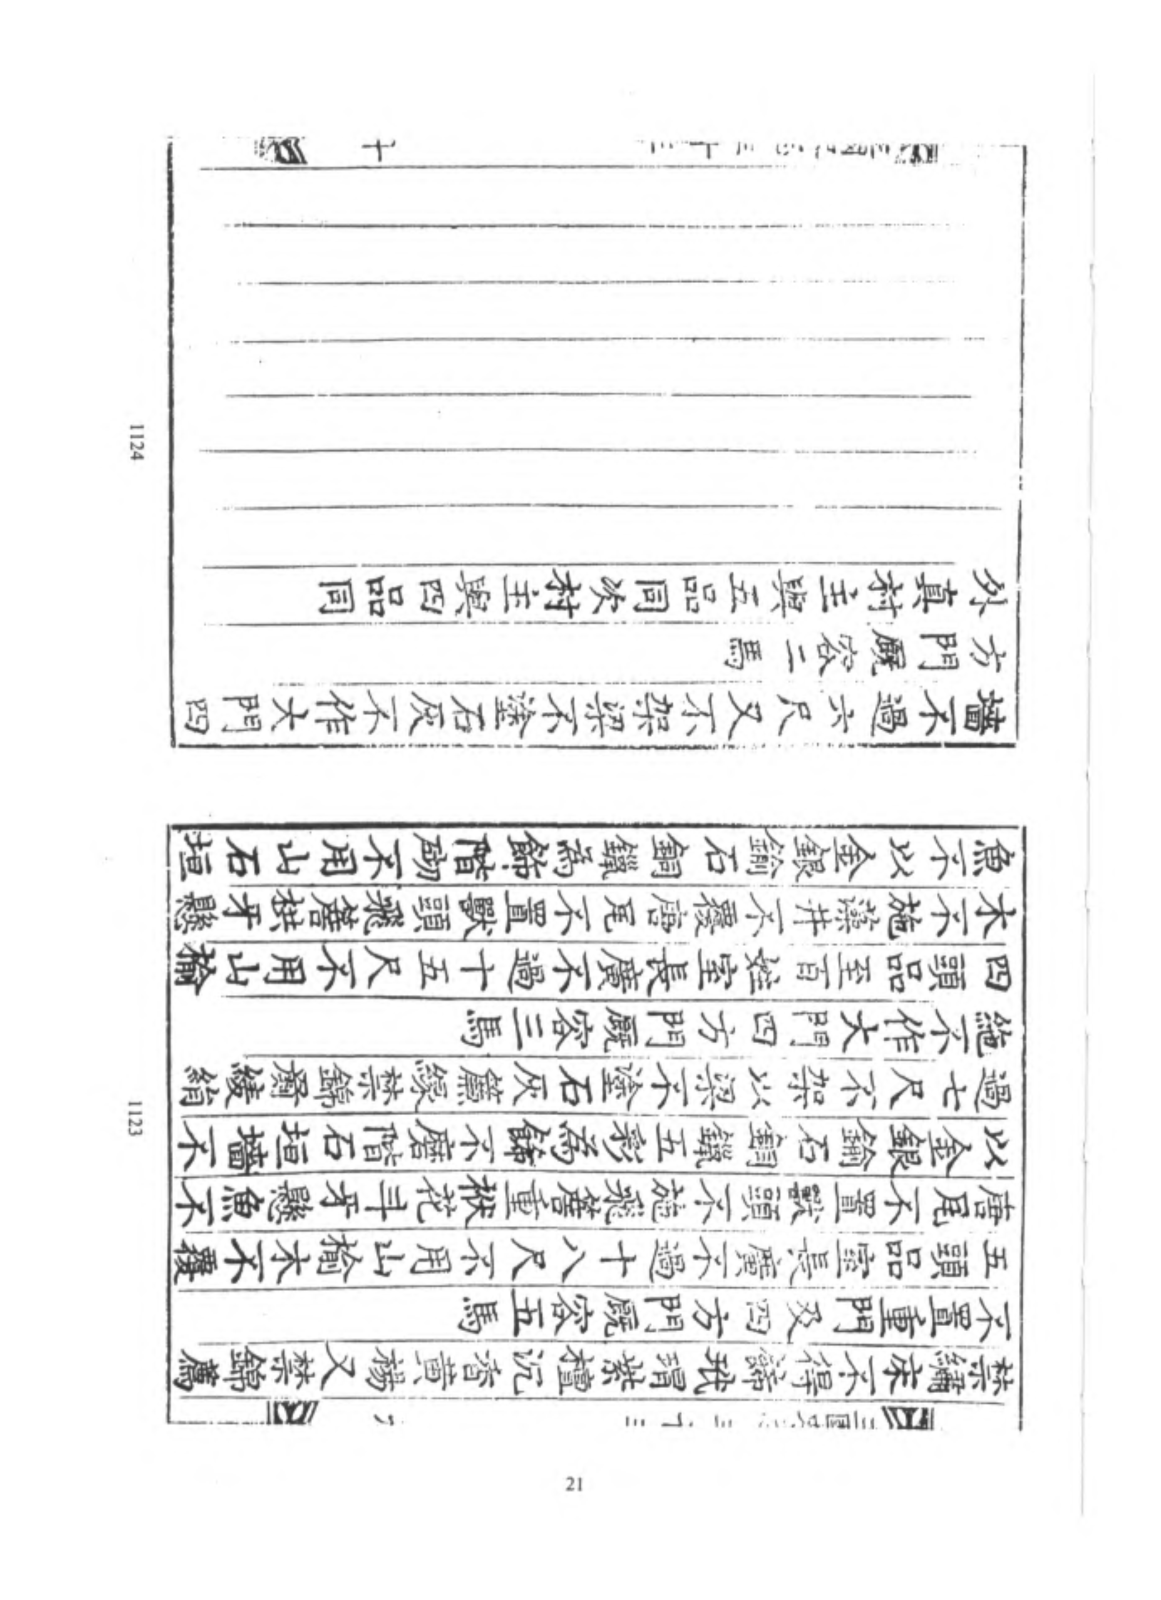 禁繡床不得飾玳瑁紫檀沉香黃楊又禁錦薦
不置重門及四方門廐容五馬
五頭品室長廣不過十八尺不用山榆木不覆
唐尾不置獸頭不施飛簷重栿花斗牙懸魚不
以金銀鍮石銅鑞五彩為飾不磨階石垣墻不
過七尺不架以梁不塗石灰簾緣禁錦罽綾絹
絁不作大門四方門廐容三馬
四頭品至百姓室長廣不過十五尺不用山榆
木不施藻井不覆唐尾不置獸頭飛簷栱牙懸
魚不以金銀鍮石銅鑞為飾階砌不用山石垣
1123
墻不過六尺又不架梁不塗石灰不作大門四
方門廐容二馬
外真村主與五品同次村主與四品同
1124
21